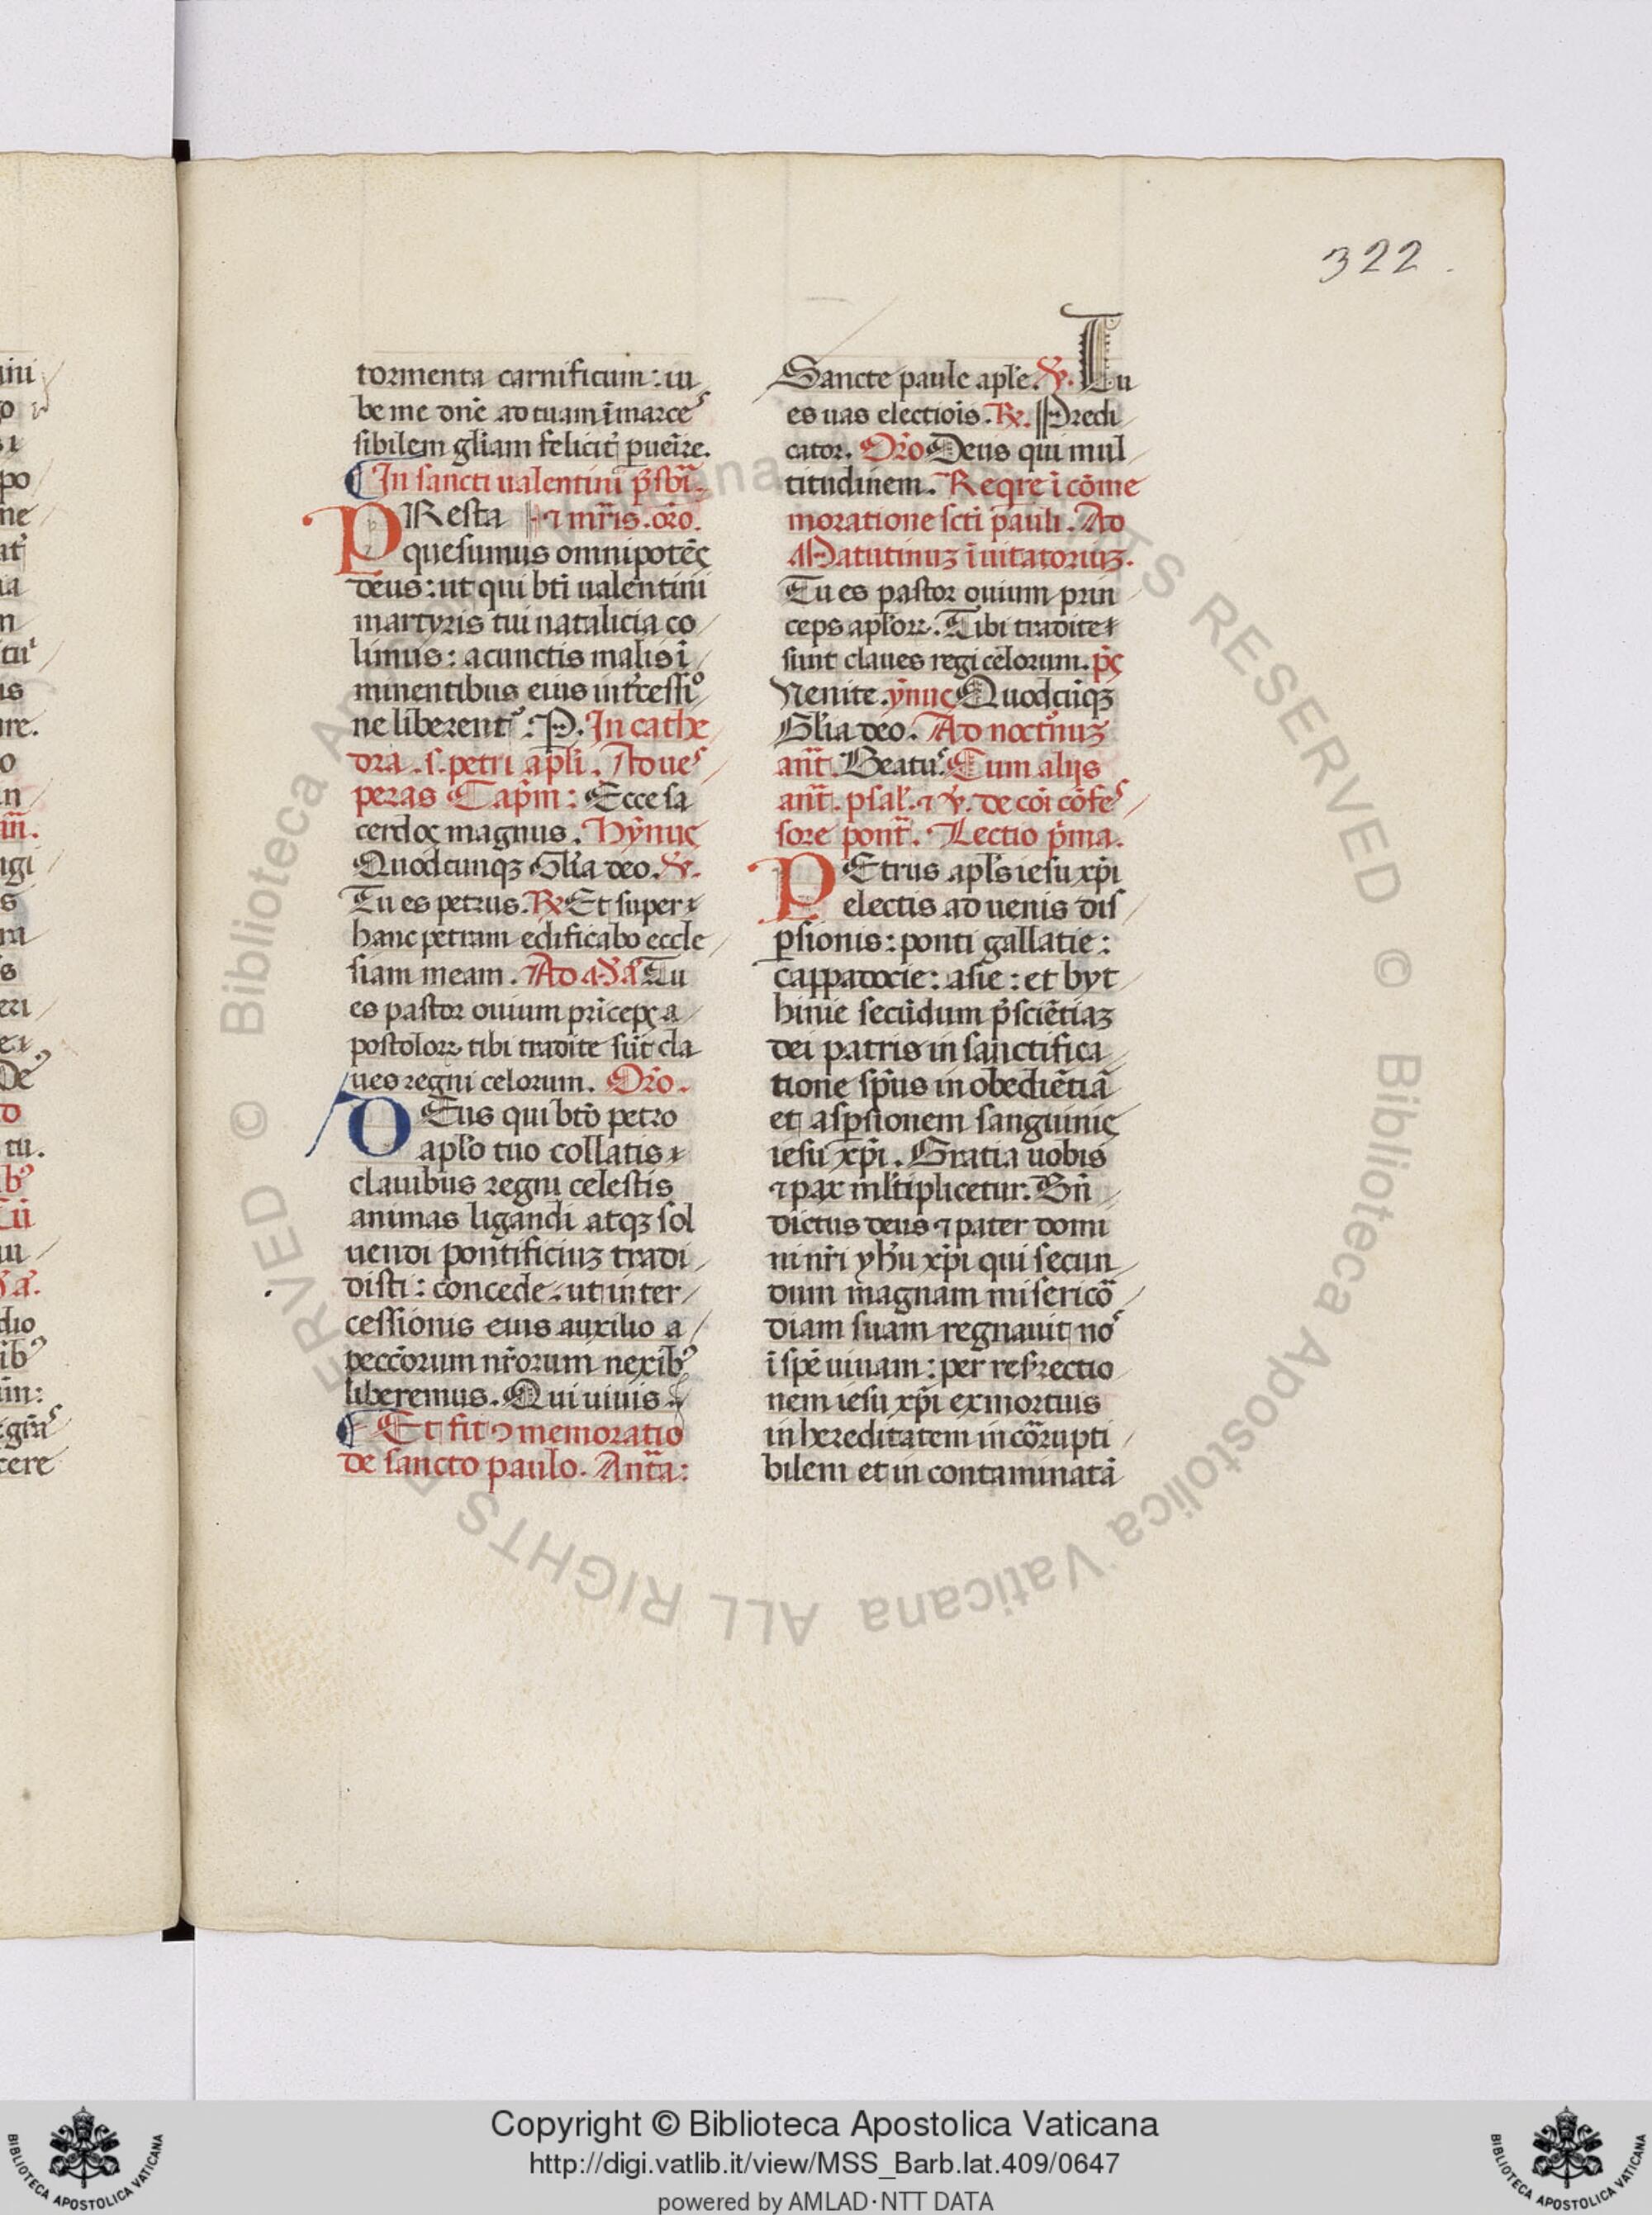 322.
tormenta carnificum: iu
be me dnē ad tuam īmarce
sibilem gliam felicit̄ puēire.
In sancti ualentini p̄sbi
PResta ⁊ mr̄is. oro.
quesumus omnipotēs
deus: ut qui bti ualentini
martyris tui natalicia co
limus: a cunctis malis ī
minentibus eius int̄cessio
ne liberent᷒: P. In cathe
dra. s. petri apli. Ad ues
peras Capm̄: Ecce sa
cerdos magnus. Hȳnus
Quodcunqꝫ Glia deo. ℣.
Tu es petrus. ℞ Et super
hanc petram edificabo eccle
siam meam. Ad M̄a Tu
es pastor ouium prīceps a
postoloꝝ tibi tradite sūt cla
ues regni celorum. Oro.
DEus qui btō petro
aplo tuo collatis
clauibus regni celestis
animas ligandi atqꝫ sol
uendi pontificiuꝫ tradi
disti: concede ut inter
cessionis eius auxilio a
peccōrum nr̄orum nexibꝰ
liberemus. Qui uiuis
Et fit ꝯmemoratio
de sancto paulo. Anta:
Sancte paule aple. ℣. Tu
es uas electiois. ℞. Predi
cator. Oro Deus qui mul
titudinem. Reqre ī cōme
moratione scti pauli. Ad
Matutinuꝫ īuitatoriuꝫ.
Tu es pastor ouium prin
ceps aploꝝ. Tibi tradite
sunt claues regi celorum. p̄s
Uenite. ȳnus Quodcūqꝫ
Glia deo. Ad noct̄nuꝫ
ant̄. Beatus. Cum alijs
ant̄. psal. ⁊ ℣. de cōi cōfes
sore pont̄. Lectio p̄ma.
PEtrus apls iesu xp̄i
electis aduenis dis
ꝑsionis: ponti gallatie:
cappadocie: asie: et byt
hinie secūdum p̄sciētiaꝫ
dei patris in sanctifica
tione sp̄us in obediētiā
et aspersionem sanguinis
iesu xp̄i. Gratia uobis
⁊ pax mltiplicetur. Bn̄
dictus deus ⁊ pater domi
ni nr̄i yhu xp̄i qui secun
dum magnam misericō
diam suam regnauit nos
ī spē uiuam: per resr̄rectio
nem iesu xp̄i ex mortuis
in hereditatem incōrupti
bilem et incontaminatā
Copyright © Biblioteca Apostolica Vaticana
http://digi.vatlib.it/view/MSS_Barb.lat.409/0647
powered by AMLAD·NTT DATA